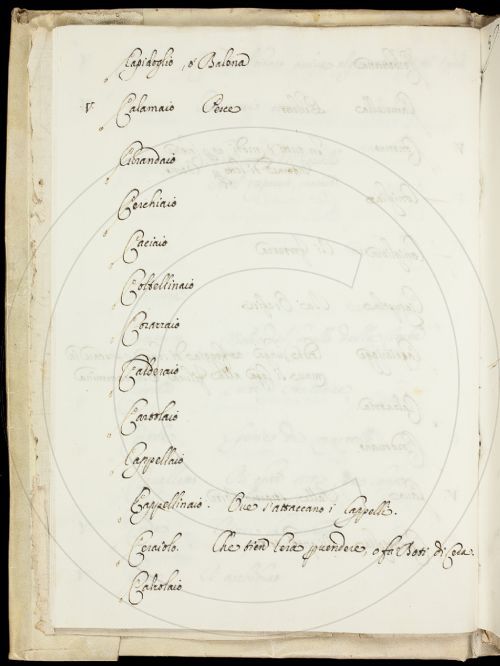 Capidoglio, ò Balena
V. Calamaio Pesce
Ghirandaio
Cerchiaio
Caciaio
Coltellinaio
Corazzaio
Calderaio
Cartolaio
Cappellaio
Cappellinaio. Dve s'attaccano i Cappelli.
Ceraiolo. Che tien Cera àvendere, o fa Boti di Cera.
Calzolaio